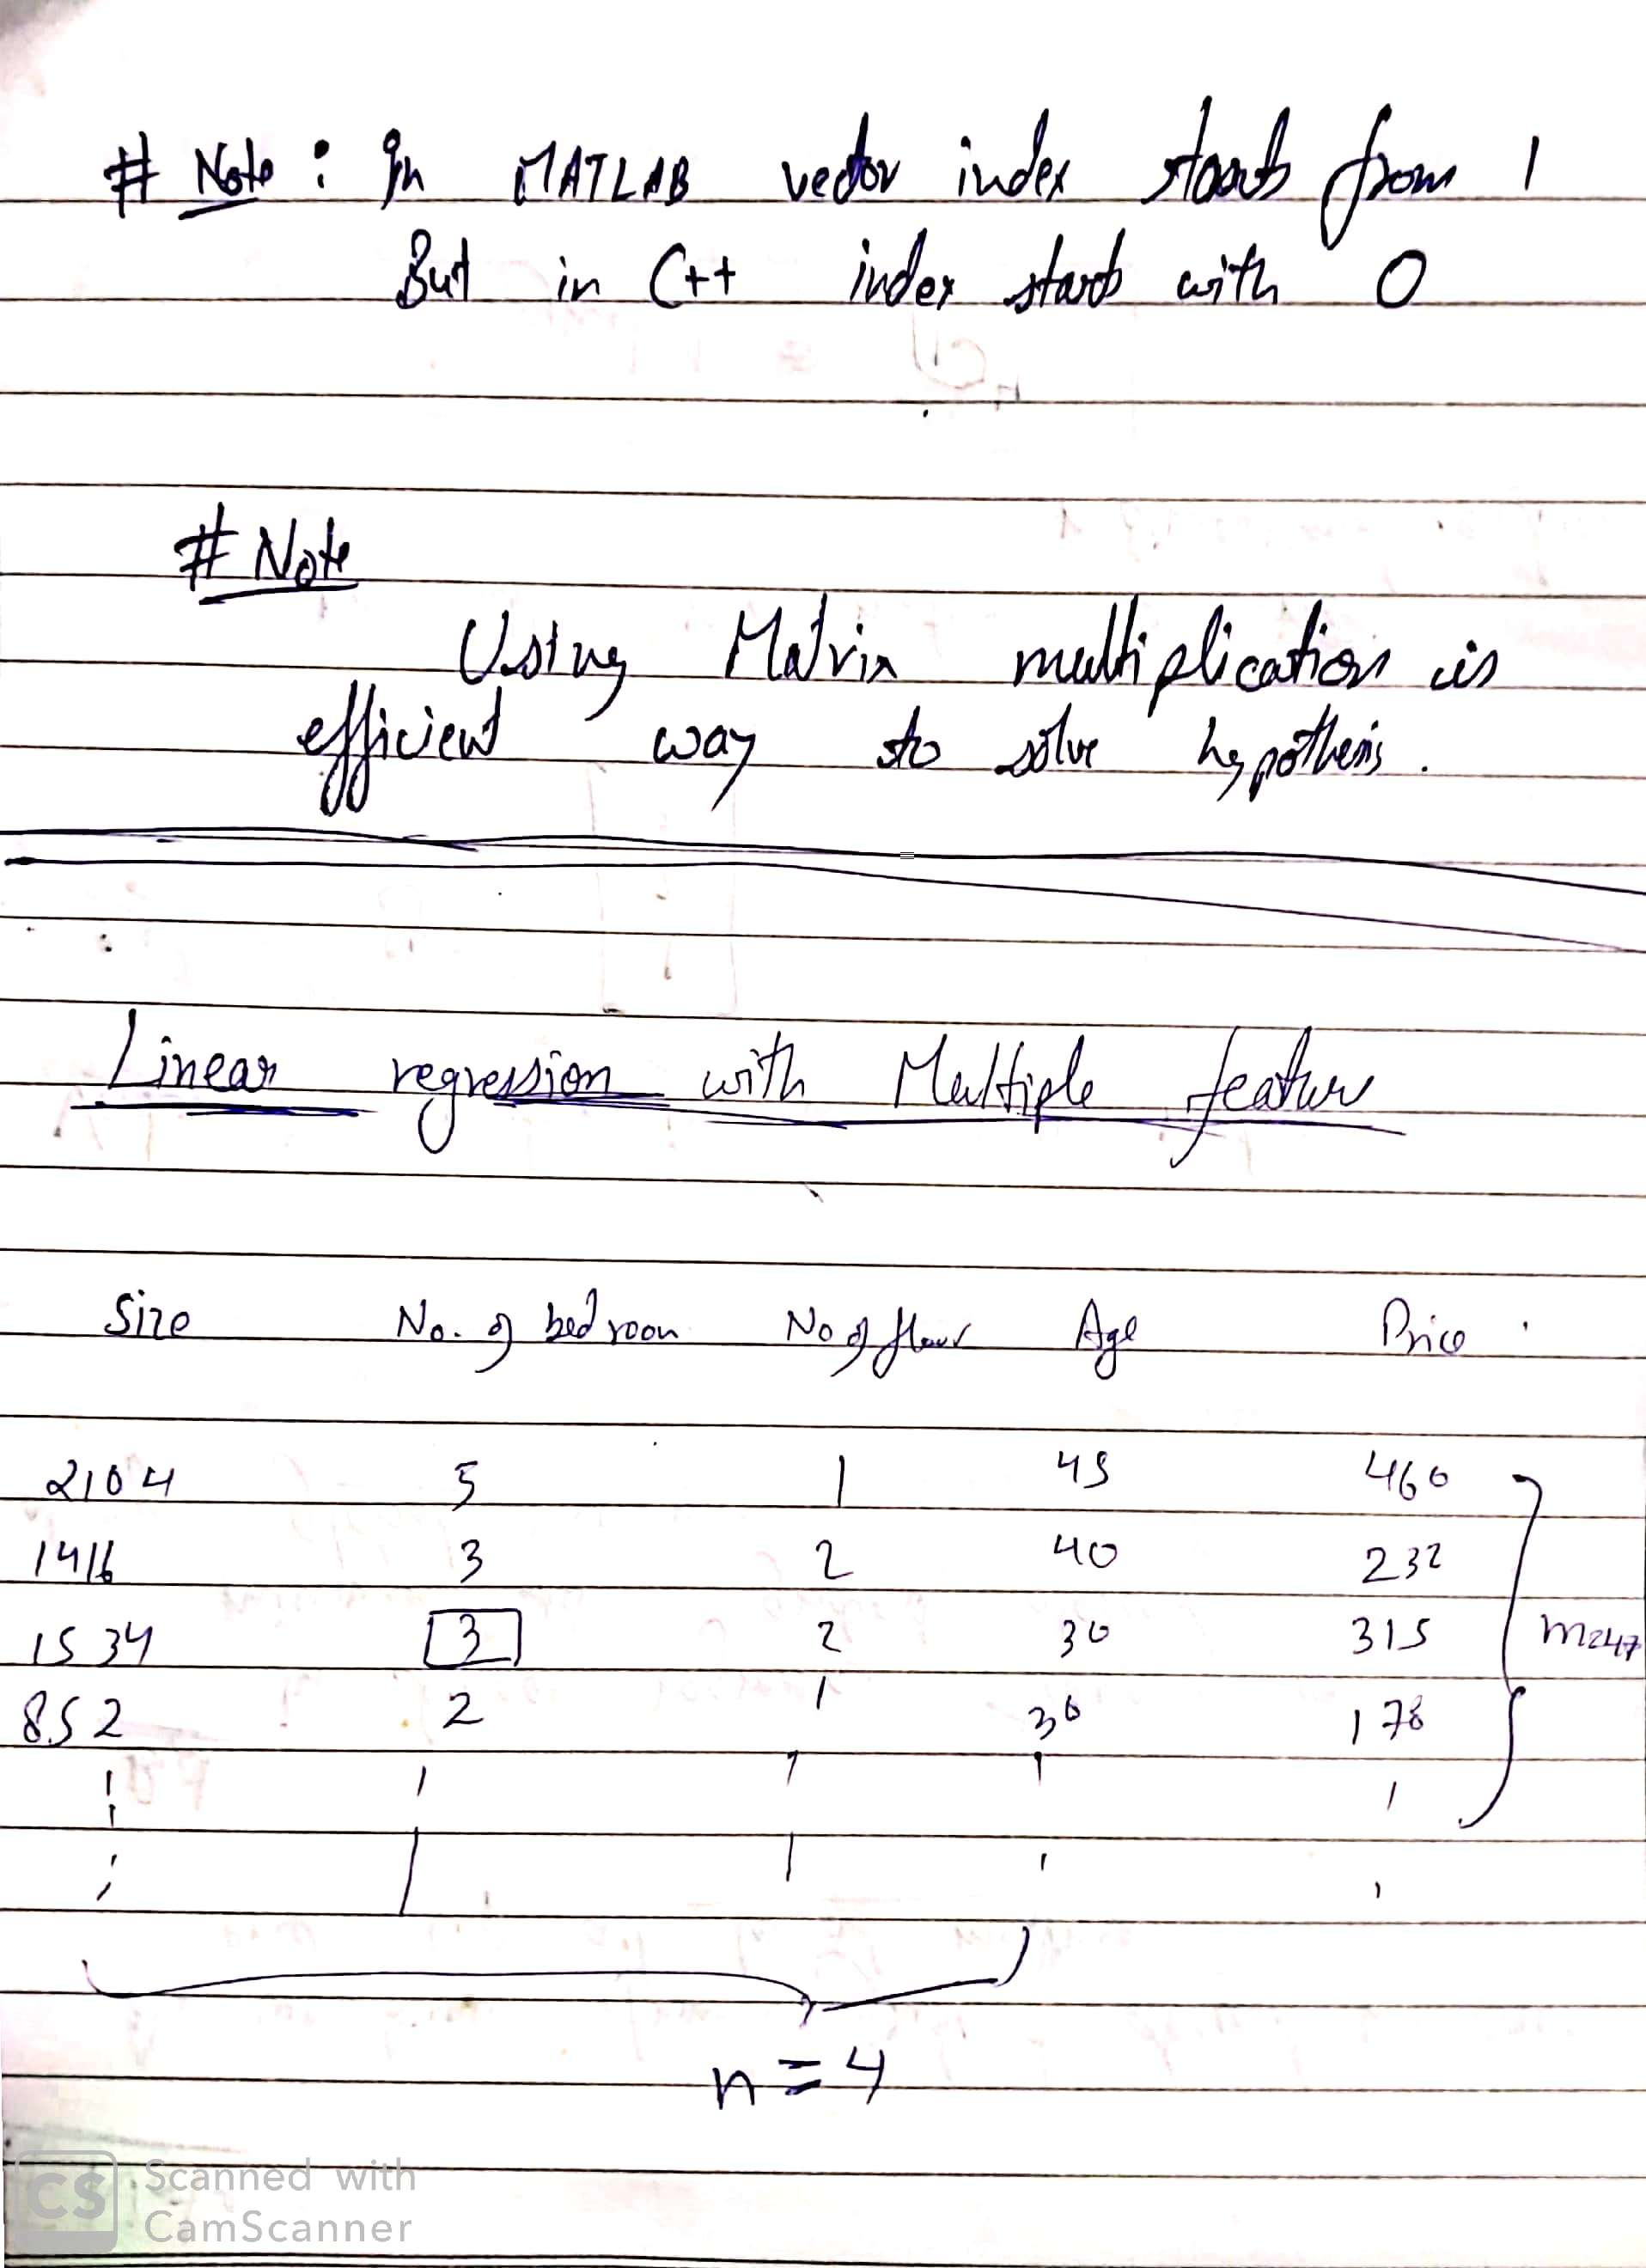 # Note : In MATLAB vector index starts from 1
But in C++ index starts with 0
# Note
Using Matrix multiplication is
efficient way to solve hypothesis.
Linear regression with Multiple feature
Size No. of bedroom No of floor Age Price
2104 5 1 45 460
1416 3 2 40 232
1534 3 2 30 315
m=47
852 2 1 36 178
n = 4
CS Scanned with
CamScanner